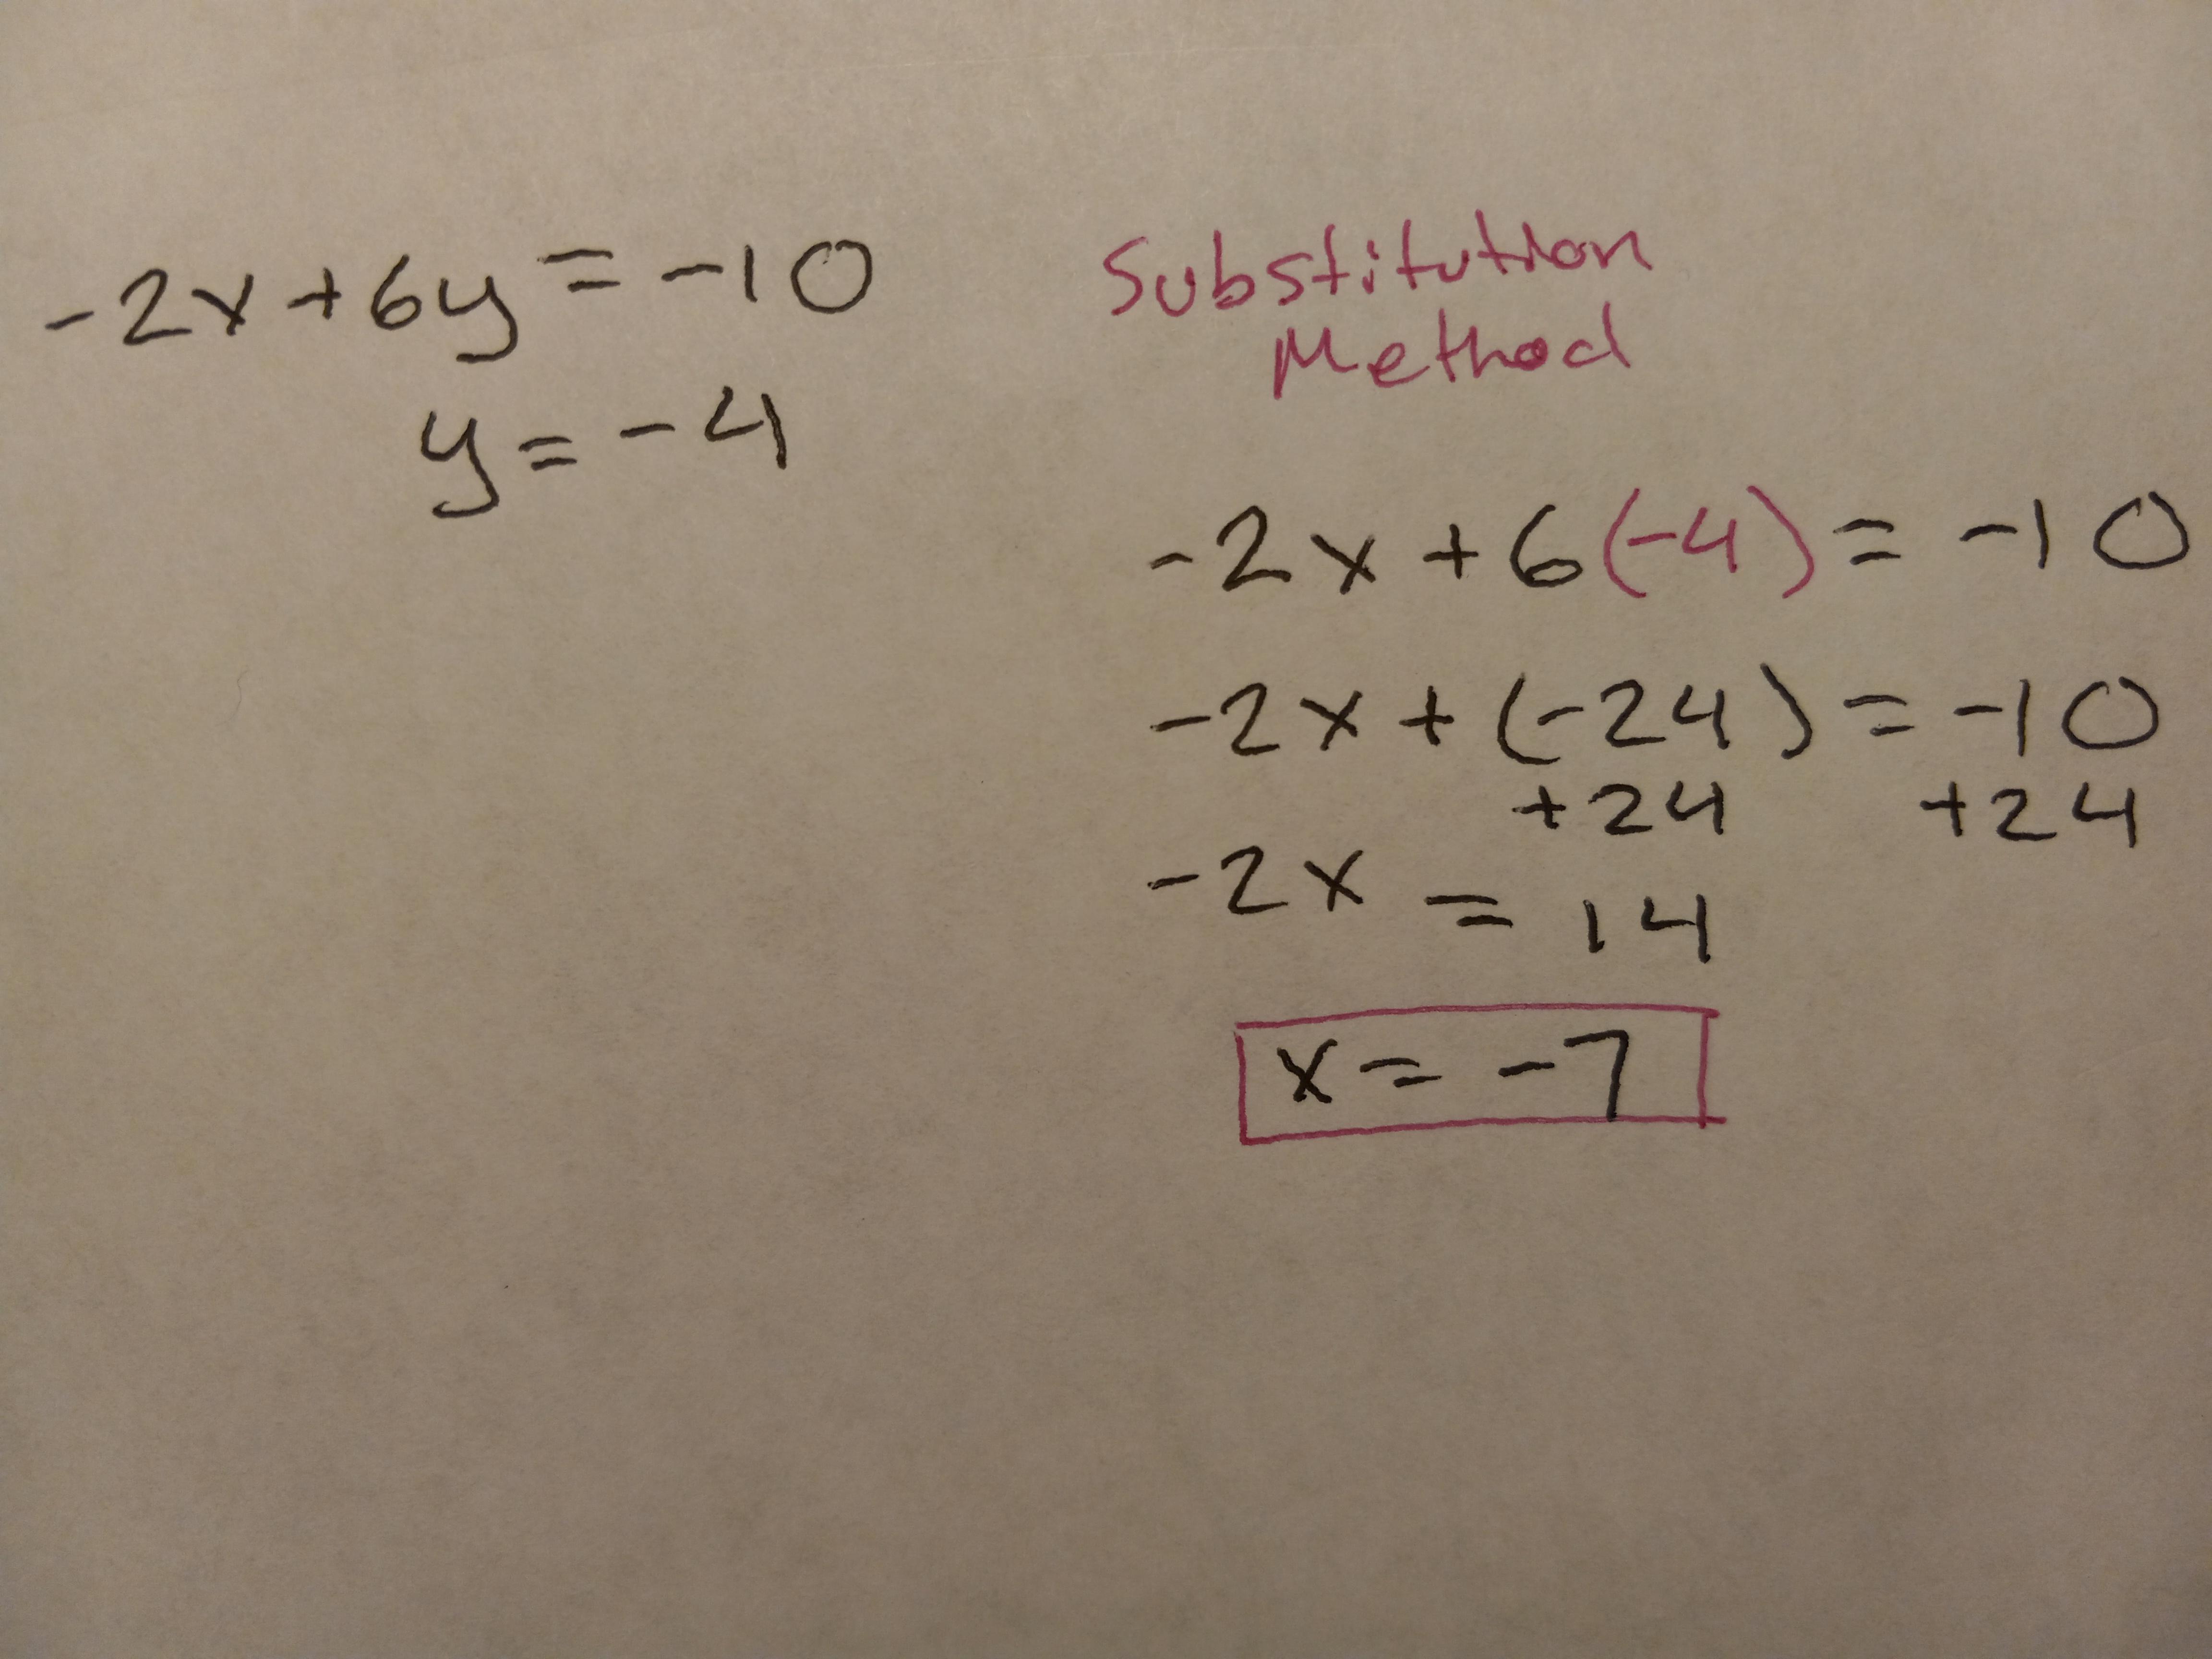 -2x+6y=-10
y=-4
Substitution
Method
-2x+6(-4)=-10
-2x+(-24)=-10
+24 +24
-2x=14
x=-7